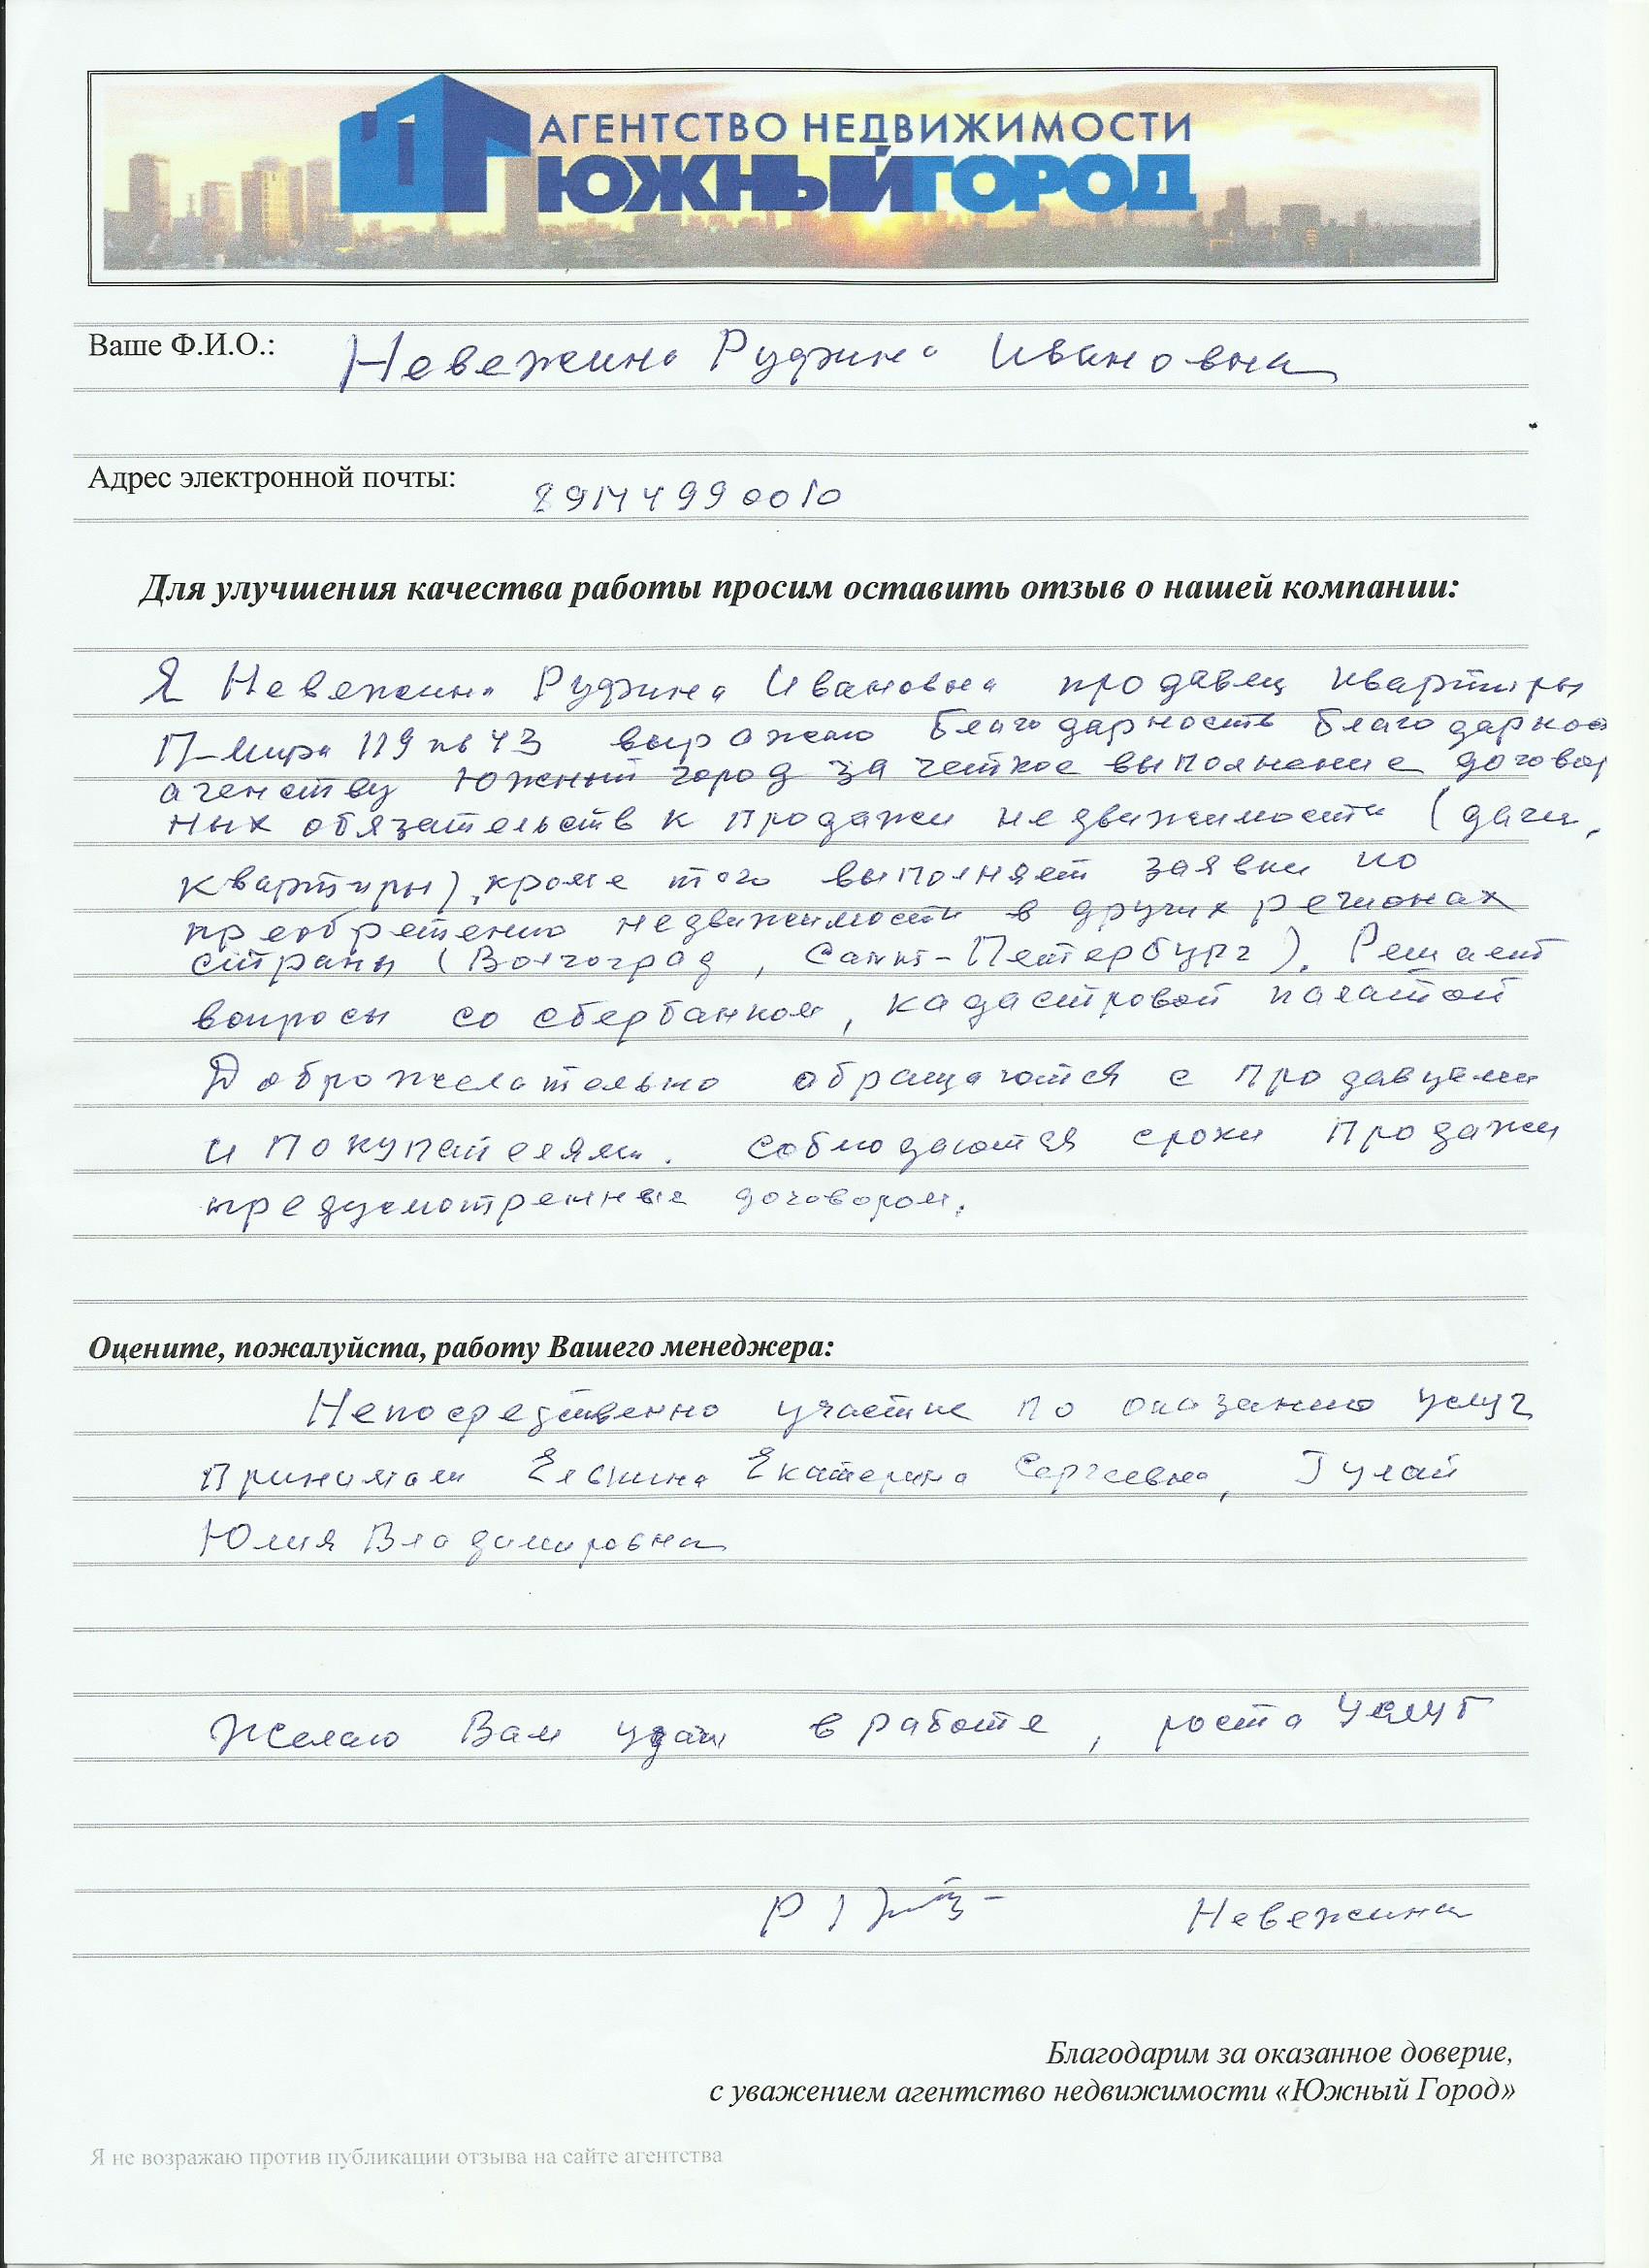 АГЕНТСТВО НЕДВИЖИМОСТИ
ЮЖНЫЙ ГОРОД
Ваше Ф.И.О.: Невежина Руфина Ивановна
Адрес электронной почты: 89144990010
Для улучшения качества работы просим оставить отзыв о нашей компании:
Я Невежина Руфина Ивановна продавец квартиры
П-Мира 119 кв 43 выражаю благодарность благодарнос
агенству Южный город за четкое выполнение договор
ных обязательств к продажи недвижимости (дачи,
квартиры), кроме того выполняет заявки по
преобретению недвижимости в других регионах
страны (Волгоград, Санкт-Петербург). Решает
вопросы со сбербанком, кадастровой палатой
Доброжелательно обращаются с продавцами
и покупателями. Соблюдаются сроки продажи
предусмотренные договором.
Оцените, пожалуйста, работу Вашего менеджера:
Непосредственно участие по оказанию услуг
Принимали Екатерина Сергеевна, Гулай
Юлия Владимировна
Желаю Вам удачи в работе, роста услуг
Невежина
Благодарим за оказанное доверие,
с уважением агентство недвижимости «Южный Город»
Я не возражаю против публикации отзыва на сайте агентства